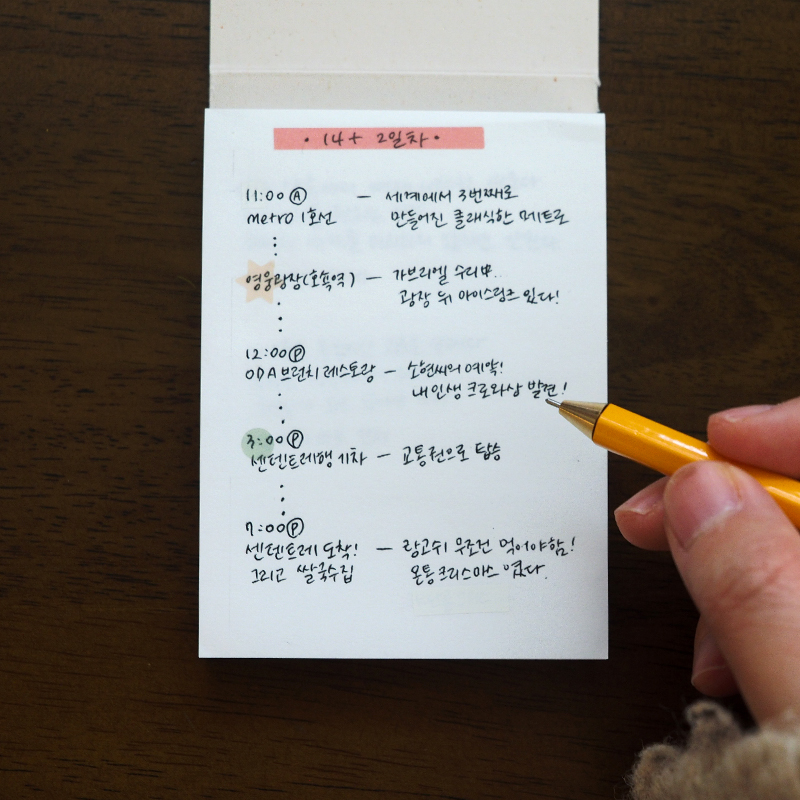 • 14+ 2일차 •
11:00 Ⓐ — 세계에서 3번째로
metro 1호선 만들어진 클래식한 메트로
영웅광장(호쇡역) — 가브리엘 수리中..
광장 뒤 아이스링크 있다!
12:00 Ⓟ
ODA 브런치 레스토랑 — 소현씨의 예약!
내 인생 크로와상 발견!
3:00 Ⓟ
센텐드레행 기차 — 교통권으로 탑승
7:00 Ⓟ
센텐드레 도착! — 랑고쉬 무조건 먹어야함!
그리고 쌀국수집 온통 크리스마스 였다.